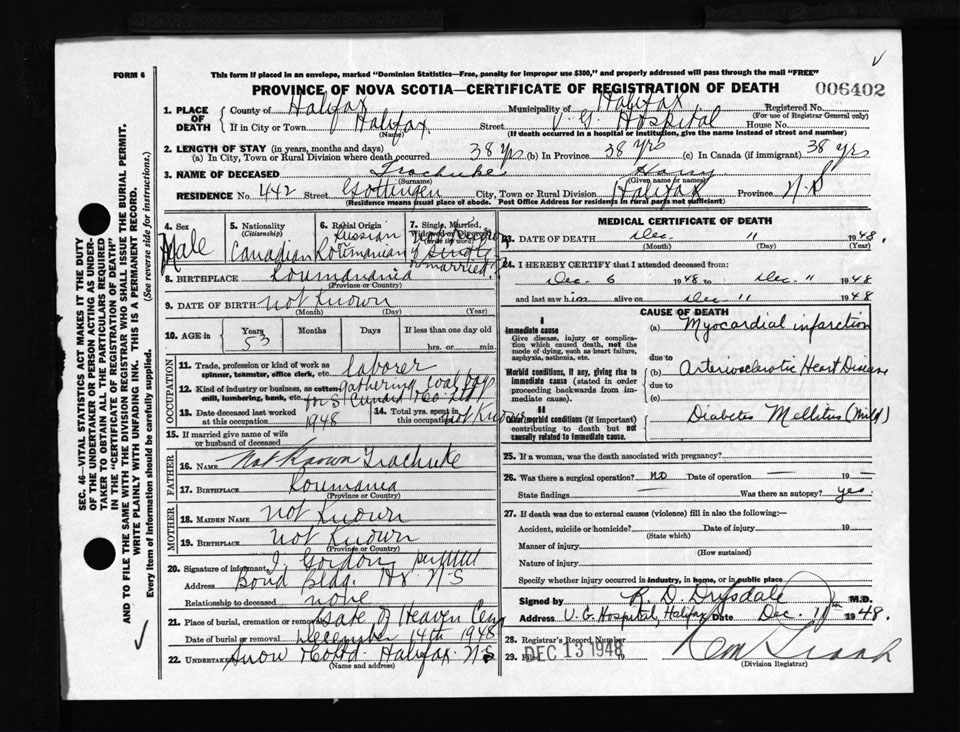 FORM 6
This form if placed in an envelope, marked "Dominion Statistics—Free, penalty for improper use $300," and properly addressed will pass through the mail "FREE"
PROVINCE OF NOVA SCOTIA—CERTIFICATE OF REGISTRATION OF DEATH
006402
1. PLACE OF DEATH County of Halifax Municipality of Halifax Registered No.
(For use of Registrar General only)
If in City or Town Halifax Street V. G. Hospital House No.
(Name) (If death occurred in a hospital or institution, give the name instead of street and number)
2. LENGTH OF STAY (in years, months and days)
(a) In City, Town or Rural Division where death occurred 38 yrs (b) In Province 38 yrs (c) In Canada (if immigrant) 38 yrs
3. NAME OF DECEASED Trachuke Harry
(Surname) (Given name or names)
RESIDENCE No. 442 Street Gottingen City, Town or Rural Division Halifax Province N.S
(Residence means usual place of abode. Post Office Address for residents in rural parts not sufficient)
4. Sex Male
5. Nationality (Citizenship) Canadian
6. Racial Origin Russian or Roumanian
7. Single, Married, Widowed or Divorced (write the word) single married
8. BIRTHPLACE Roumanania
(Province or Country)
9. DATE OF BIRTH not known
(Month) (Day) (Year)
10. AGE in Years Months Days If less than one day old
53 hrs. or min.
OCCUPATION
11. Trade, profession or kind of work as spinner, teamster, office clerk, etc. laborer
12. Kind of industry or business, as cotton mill, lumbering, bank, etc. gathering coal bags for S Cunard & Co Ltd
13. Date deceased last worked at this occupation 1948
14. Total yrs. spent in this occupation not known
15. If married give name of wife or husband of deceased
FATHER
16. NAME Not Known Trachuke
17. BIRTHPLACE Roumania
(Province or Country)
MOTHER
18. MAIDEN NAME not known
19. BIRTHPLACE not known
(Province or Country)
20. Signature of informant J. Gordon
Address Bond Bldg. Hx N-S
Relationship to deceased none
21. Place of burial, cremation or removal Gate of Heaven Cem
Date of burial or removal December 14th 1948
22. Undertaker Snow & Co Ltd. Halifax. N-S
(Name and address)
MEDICAL CERTIFICATE OF DEATH
23. DATE OF DEATH Dec. 11 1948.
(Month) (Day) (Year)
24. I HEREBY CERTIFY that I attended deceased from:
Dec. 6 1948 to Dec. 11 1948
and last saw him alive on Dec 11 1948
CAUSE OF DEATH
I
Immediate cause
Give disease, injury or complication which caused death, not the mode of dying, such as heart failure, asphyxia, asthenia, etc.
(a) Myocardial infarction
due to
Morbid conditions, if any, giving rise to immediate cause (stated in order proceeding backwards from immediate).
(b) Arteriosclerotic Heart Disease
due to
(c)
II
Other morbid conditions (if important) contributing to death but not causally related to immediate cause.
Diabetes Mellitus (Mild)
25. If a woman, was the death associated with pregnancy?
26. Was there a surgical operation? NO Date of operation 19
State findings Was there an autopsy? yes
27. If death was due to external causes (violence) fill in also the following:—
Accident, suicide or homicide? Date of injury 19
(State which)
Manner of injury
(How sustained)
Nature of injury
Specify whether injury occurred in industry, in home, or in public place
Signed by R. D. Drysdale M.D.
Address V. G. Hospital, Halifax Date Dec. 11th 1948.
28. Registrar's Record Number
29. Filed DEC 13 1948
(Division Registrar)
SEC. 46—VITAL STATISTICS ACT MAKES IT THE DUTY
OF THE UNDERTAKER OR PERSON ACTING AS UNDERTAKER TO OBTAIN ALL THE PARTICULARS REQUIRED
IN THE "CERTIFICATE OF REGISTRATION OF DEATH"
AND TO FILE THE SAME WITH THE DIVISION REGISTRAR WHO SHALL ISSUE THE BURIAL PERMIT.
WRITE PLAINLY WITH UNFADING INK. THIS IS A PERMANENT RECORD.
Every item of information should be carefully supplied. (See reverse side for instructions.)